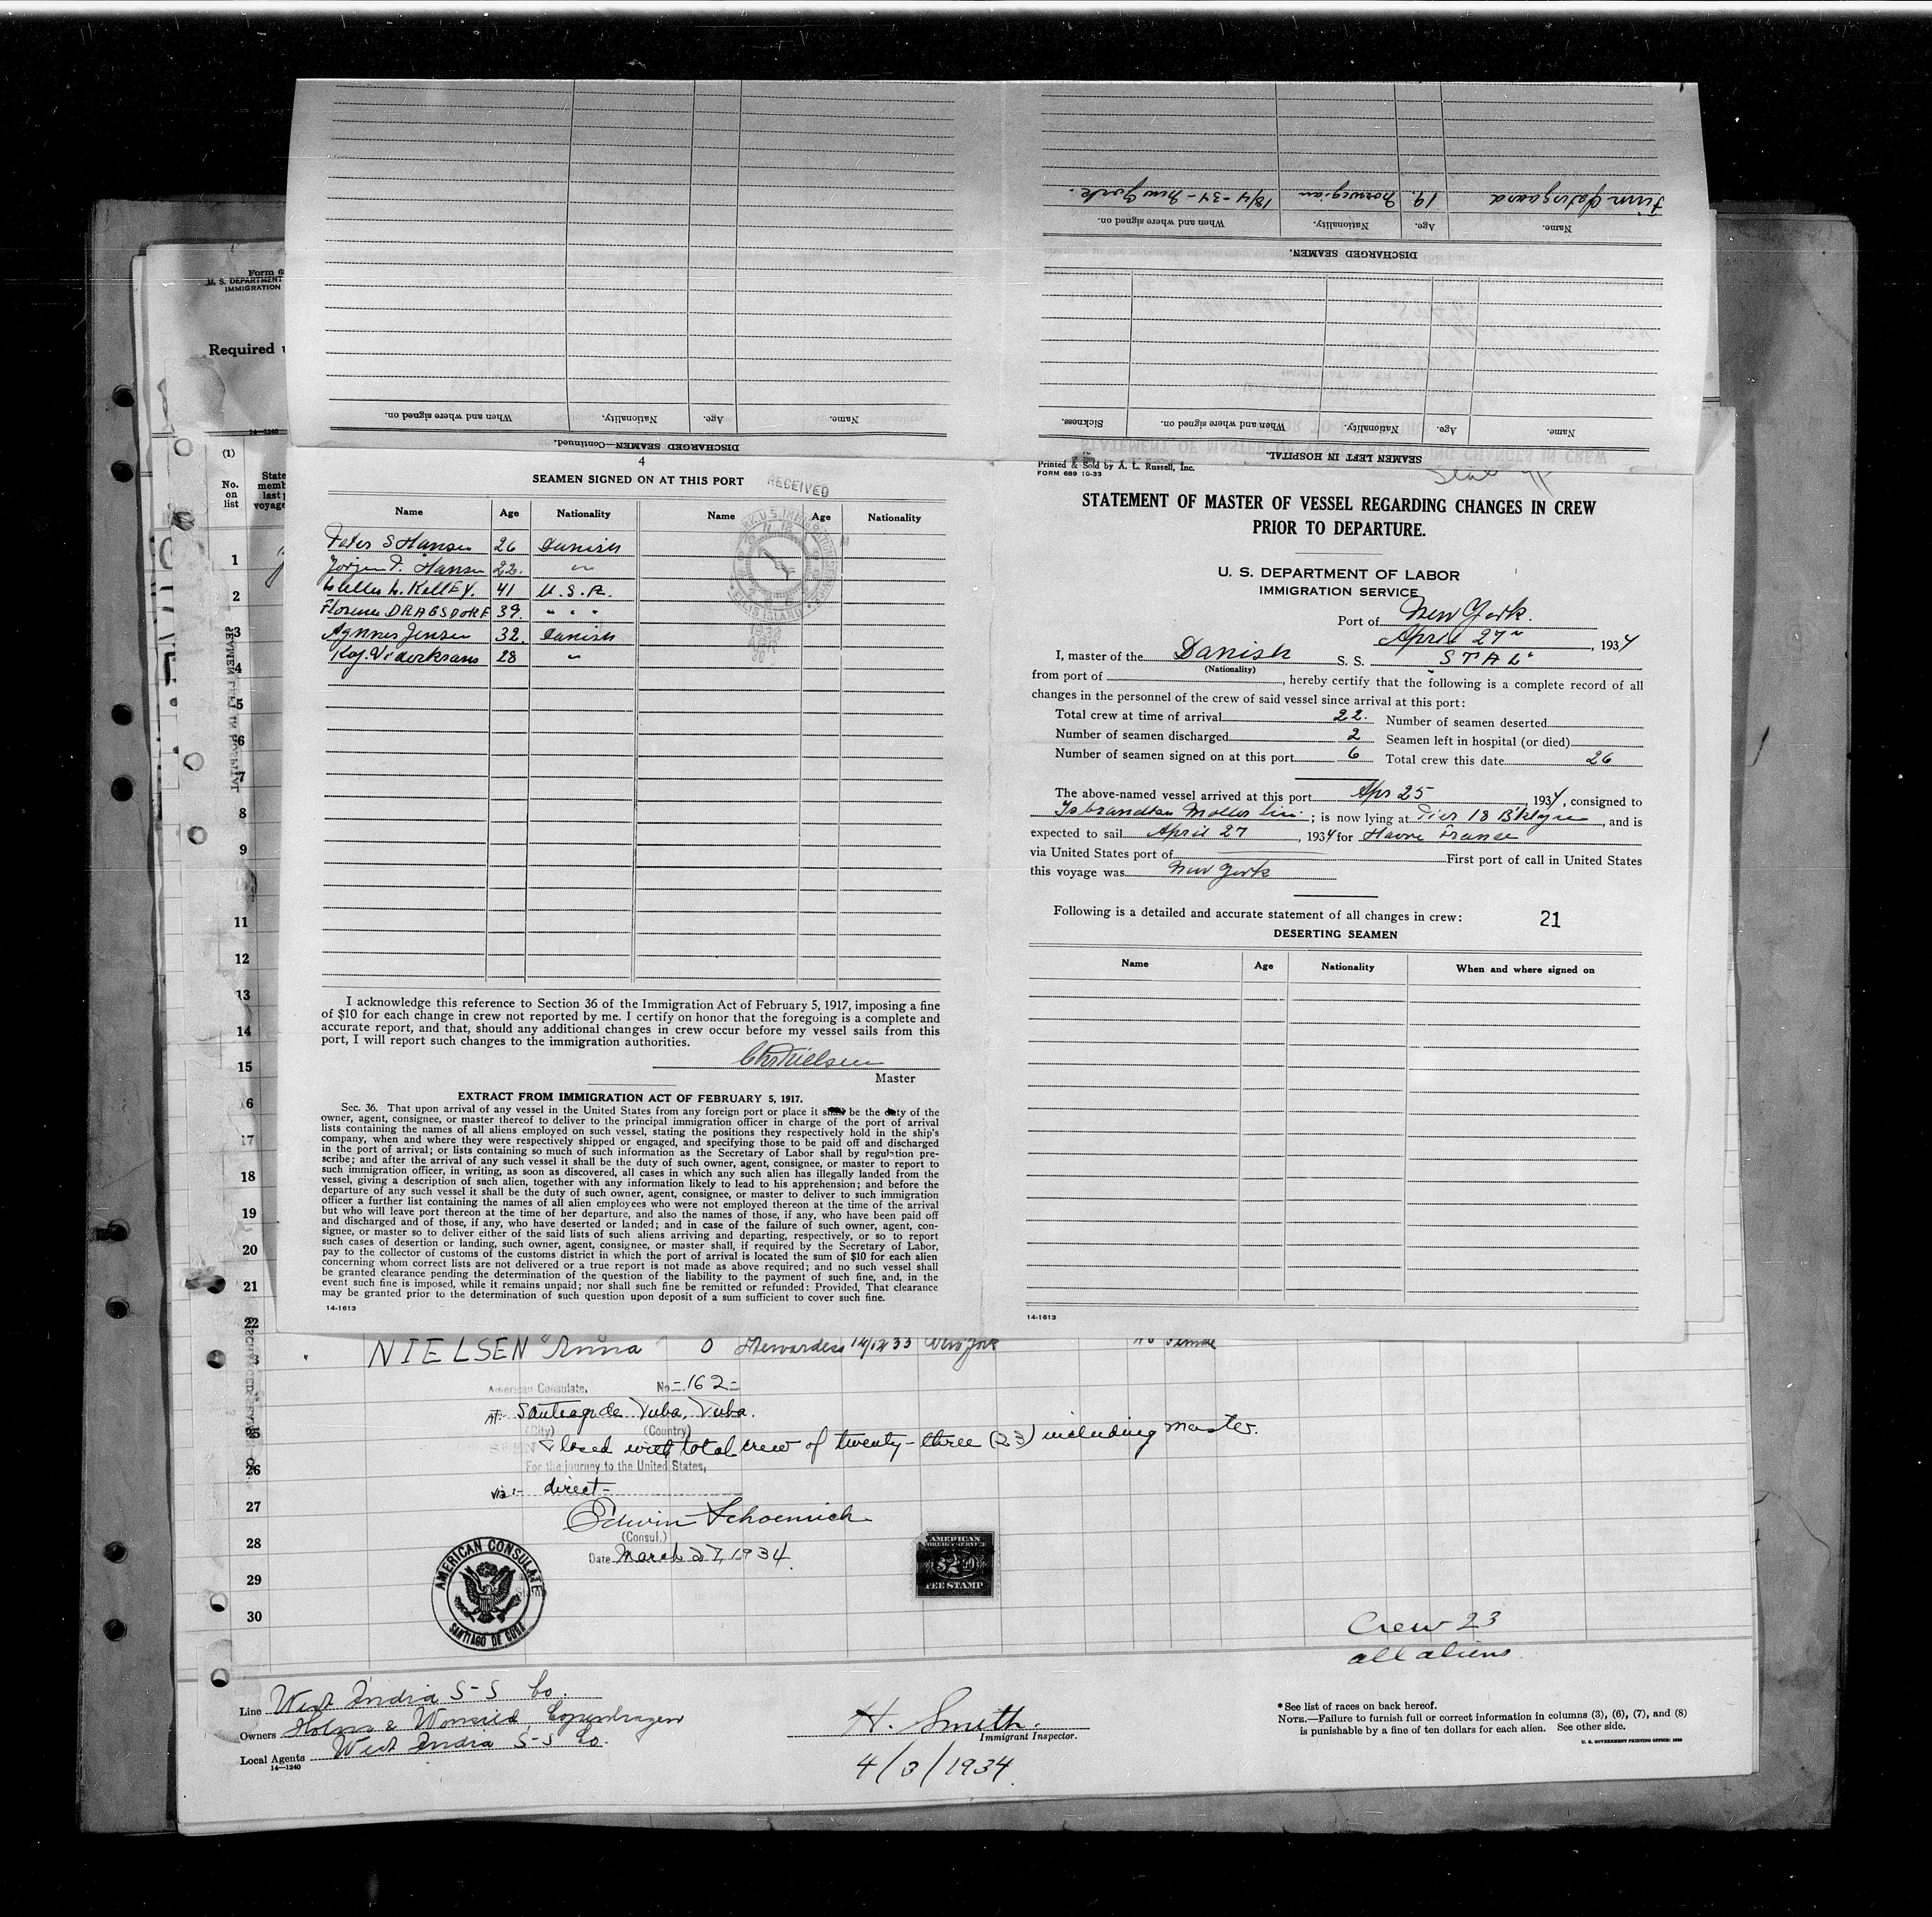 Finn
19.
Norwegian
18/4-34 - New York.
Name.
Age.
Nationality.
When and where signed on.
DISCHARGED SEAMEN.
Name.
Age.
Nationality.
When and where signed on.
Sickness.
SEAMEN LEFT IN HOSPITAL.
Name.
Age.
Nationality.
When and where signed on.
DISCHARGED SEAMEN—Continued.
U. S. DEPARTMENT
IMMIGRATION
Required
14-1240
(1)
No.
on
list
1
2
3
4
5
6
7
8
9
11
12
13
14
15
6
17
18
19
20
21
22
3
25
26
27
28
29
30
4
SEAMEN SIGNED ON AT THIS PORT
RECEIVED
Name Age Nationality Name Age Nationality
Peter S Hansen 26 Danish
Jörgen F. Hansen 22. "
L. KellEy. 41 U.S.A.
Florence DRAGSDORF 39. " " "
Agnnes Jensen 32. Danish
Kaj. 28 "
I acknowledge this reference to Section 36 of the Immigration Act of February 5, 1917, imposing a fine
of $10 for each change in crew not reported by me. I certify on honor that the foregoing is a complete and
accurate report, and that, should any additional changes in crew occur before my vessel sails from this
port, I will report such changes to the immigration authorities.
Chr Nielsen
Master
EXTRACT FROM IMMIGRATION ACT OF FEBRUARY 5, 1917.
Sec. 36. That upon arrival of any vessel in the United States from any foreign port or place it shall be the duty of the
owner, agent, consignee, or master thereof to deliver to the principal immigration officer in charge of the port of arrival
lists containing the names of all aliens employed on such vessel, stating the positions they respectively hold in the ship's
company, when and where they were respectively shipped or engaged, and specifying those to be paid off and discharged
in the port of arrival; or lists containing so much of such information as the Secretary of Labor shall by regulation pre-
scribe; and after the arrival of any such vessel it shall be the duty of such owner, agent, consignee, or master to report to
such immigration officer, in writing, as soon as discovered, all cases in which any such alien has illegally landed from the
vessel, giving a description of such alien, together with any information likely to lead to his apprehension; and before the
departure of any such vessel it shall be the duty of such owner, agent, consignee, or master to deliver to such immigration
officer a further list containing the names of all alien employees who were not employed thereon at the time of the arrival
but who will leave port thereon at the time of her departure, and also the names of those, if any, who have been paid off
and discharged and of those, if any, who have deserted or landed; and in case of the failure of such owner, agent, con-
signee, or master so to deliver either of the said lists of such aliens arriving and departing, respectively, or so to report
such cases of desertion or landing, such owner, agent, consignee, or master shall, if required by the Secretary of Labor,
pay to the collector of customs of the customs district in which the port of arrival is located the sum of $10 for each alien
concerning whom correct lists are not delivered or a true report is not made as above required; and no such vessel shall
be granted clearance pending the determination of the question of the liability to the payment of such fine, and, in the
event such fine is imposed, while it remains unpaid; nor shall such fine be remitted or refunded: Provided, That clearance
may be granted prior to the determination of such question upon deposit of a sum sufficient to cover such fine.
14-1613
Printed & Sold by A. L. Russell, Inc.
FORM 689 10-33
STATEMENT OF MASTER OF VESSEL REGARDING CHANGES IN CREW
PRIOR TO DEPARTURE.
U. S. DEPARTMENT OF LABOR
IMMIGRATION SERVICE
Port of New York.
April 27", 1934
I, master of the Danish S. S. "STAL"
(Nationality)
from port of , hereby certify that the following is a complete record of all
changes in the personnel of the crew of said vessel since arrival at this port:
Total crew at time of arrival 22. Number of seamen deserted
Number of seamen discharged 2 Seamen left in hospital (or died)
Number of seamen signed on at this port 6 Total crew this date 26
The above-named vessel arrived at this port Apr 25, 1934, consigned to
Isbrandtsen Moller Lin; is now lying at Pier 18 B'klyn, and is
expected to sail April 27, 1934 for Havre France
via United States port of First port of call in United States
this voyage was New York
Following is a detailed and accurate statement of all changes in crew: 21
DESERTING SEAMEN
Name Age Nationality When and where signed on
14-1613
NIELSEN Anna 0 Stewardess 14/12 33 New York
American Consulate. No -162-
AT: Santiago de Cuba, Cuba.
(City) (Country)
Closed with total crew of twenty-three (23) including Master.
For the journey to the United States,
via:- direct-
Edwin Schoenrich
(Consul.)
Date March 27, 1934.
AMERICAN CONSULATE
SANTIAGO DE CUBA
AMERICAN
FOREIGN SERVICE
$2.00
FEE STAMP
Crew 23
all aliens
Line West India S-S Co.
Owners Holm & Wonsild, Copenhagen
Local Agents West India S-S Co.
14—1240
H. Smith.
Immigrant Inspector.
4/3/1934.
*See list of races on back hereof.
NOTE.—Failure to furnish full or correct information in columns (3), (6), (7), and (8)
is punishable by a fine of ten dollars for each alien. See other side.